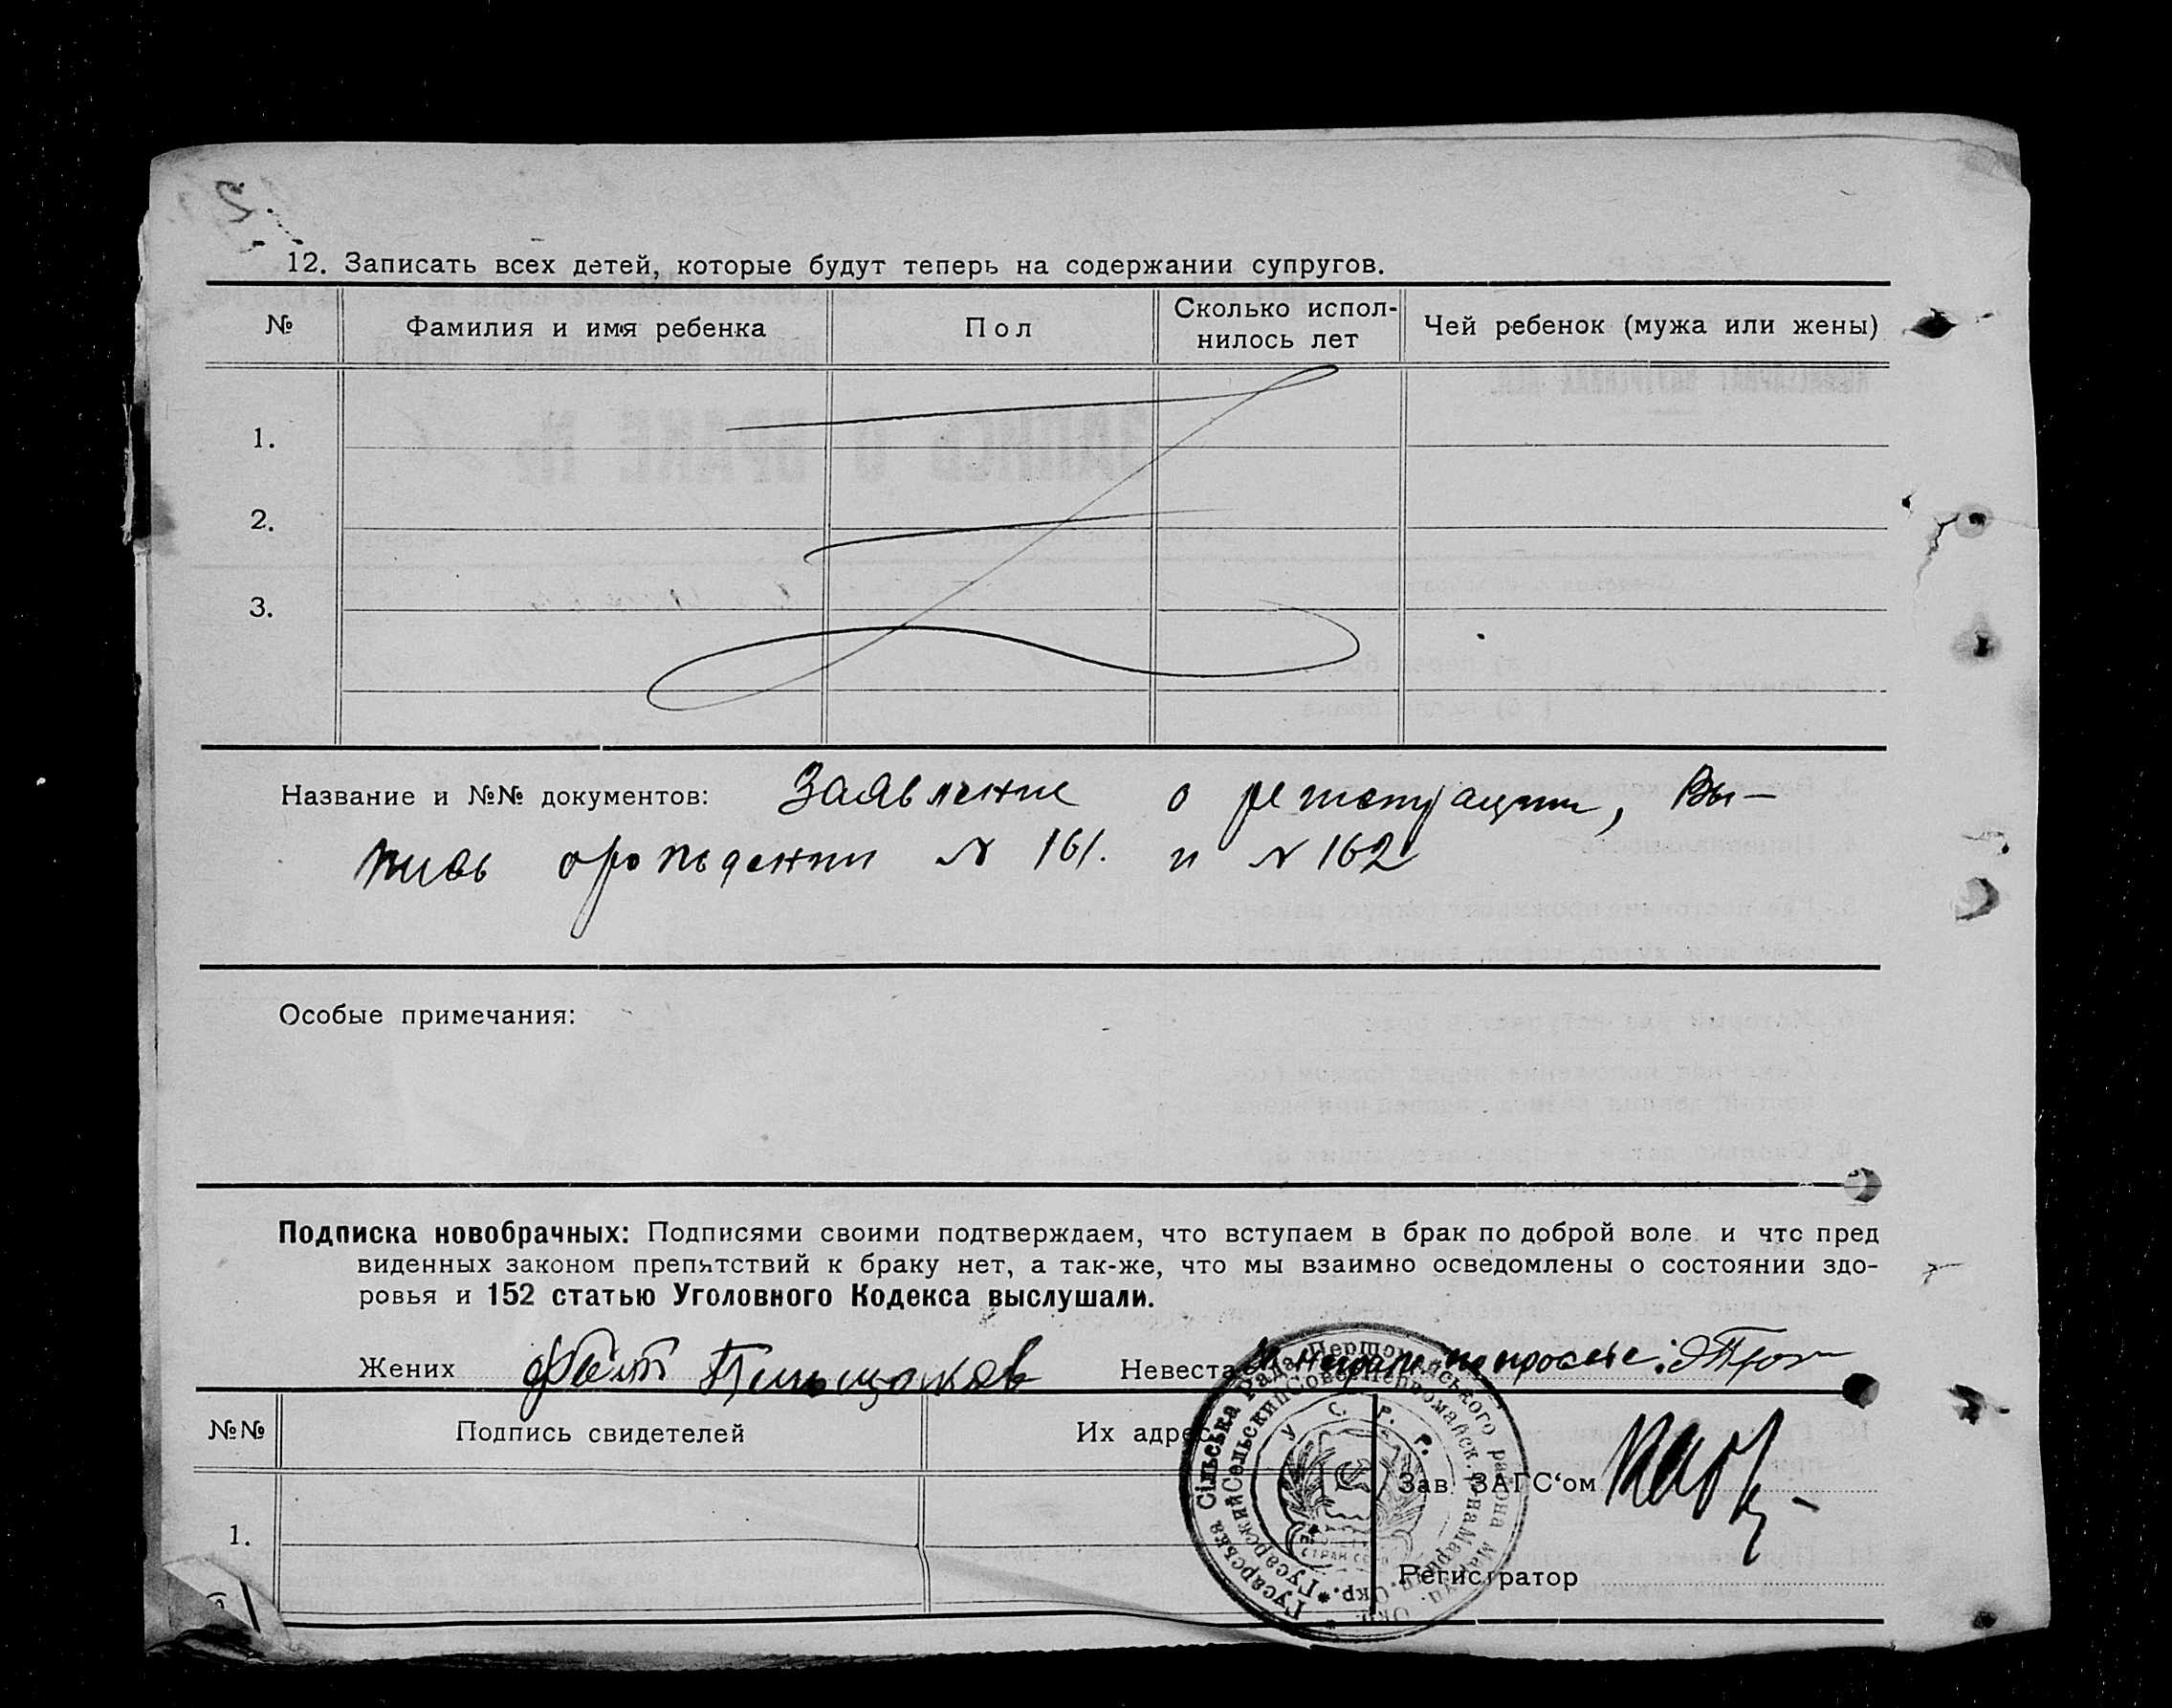 12. Записать всех детей, которые будут теперь на содержании супругов.
№
Фамилия и имя ребенка
Пол
Сколько испол-
нилось лет
Чей ребенок (мужа или жены)
1.
2.
3.
Название и №№ документов: Заявление о регистрации, Вы-
пись о рождении № 161. и № 162
Особые примечания:
Подписка новобрачных: Подписями своими подтверждаем, что вступаем в брак по доброй воле и что пред
виденных законом препятствий к браку нет, а так-же, что мы взаимно осведомлены о состоянии здо-
ровья и 152 статью Уголовного Кодекса выслушали.
Жених
Невеста
№№
Подпись свидетелей
Их адрес
1.
Зав. ЗАГС‘ом
Регистратор
Гусарська Сільська Рада Першомайського района Маріуп. Окр.
Гусарский Сельский Совет Первомайск. р-на Мариуп. Окр.
У. С. Р. Р.